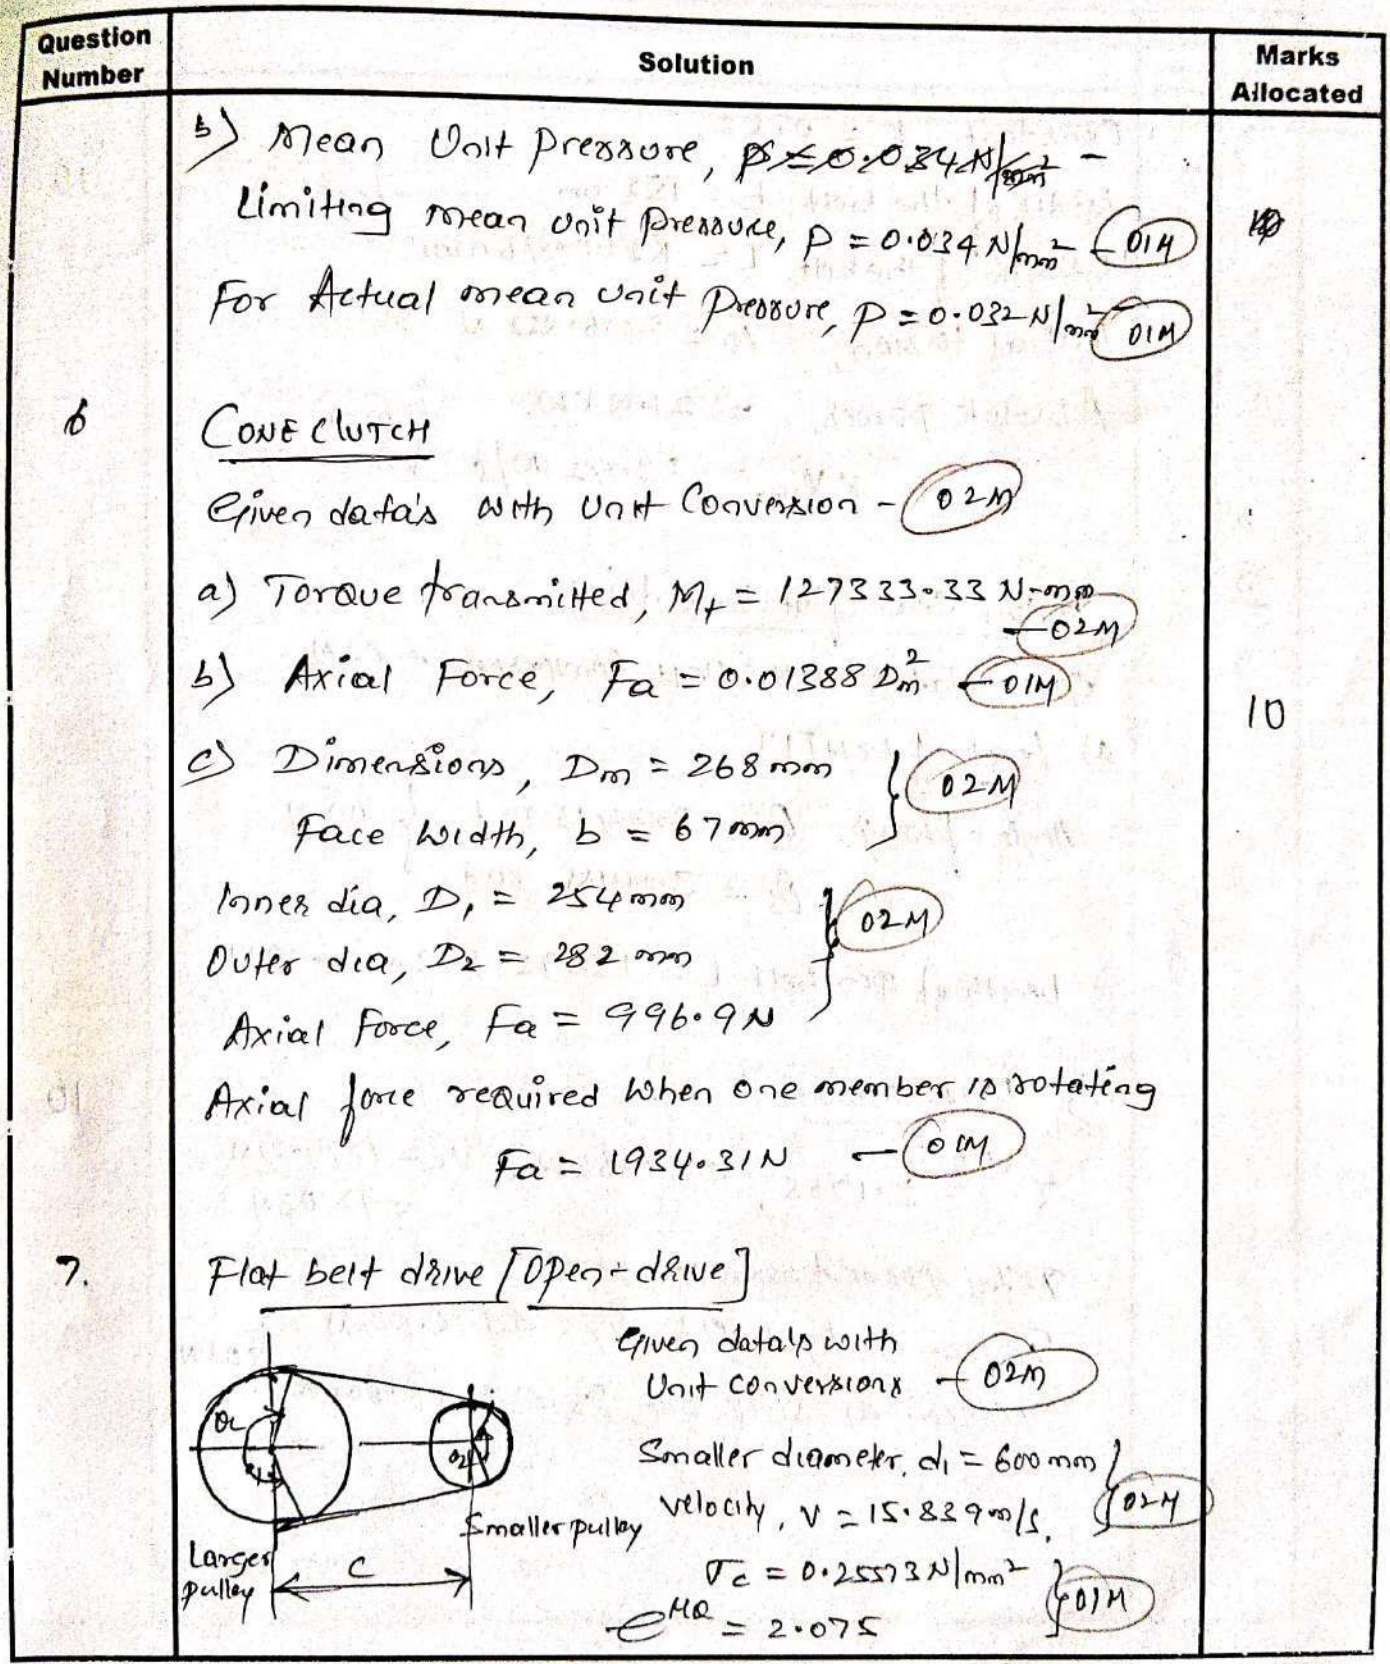 Question Number
Solution
Marks Allocated
b) Mean Unit Pressure, p = 0.034 N/mm² -
Limiting mean unit pressure, P = 0.034 N/mm² - 01M
10
For Actual mean unit Pressure, P = 0.032 N/mm² 01M
6
CONE CLUTCH
Given data's with Unit Conversion - 02M
a) Torque transmitted, Mt = 127333.33 N-mm
- 02M
b) Axial Force, Fa = 0.01388 Dm² - 01M
10
c) Dimensions, Dm = 268 mm
02M
Face width, b = 67 mm
Inner dia, D1 = 254 mm
02M
Outer dia, D2 = 282 mm
Axial Force, Fa = 996.9 N
Axial force required when one member is rotating
Fa = 1934.31 N - 01M
7.
Flat belt drive [Open-drive]
Given data's with
Unit conversions - 02M
Smaller diameter, d1 = 600 mm
velocity, V = 15.839 m/s.
02M
Smaller pulley
Larger pulley
C
σc = 0.25573 N/mm²
01M
e^μθ = 2.075